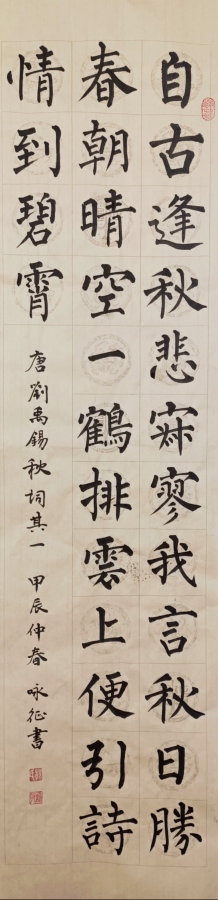 自古逢秋悲寂寥我言秋日勝
春朝晴空一鶴排雲上便引詩
情到碧霄
唐劉禹錫秋詞其一 甲辰仲春 咏征書